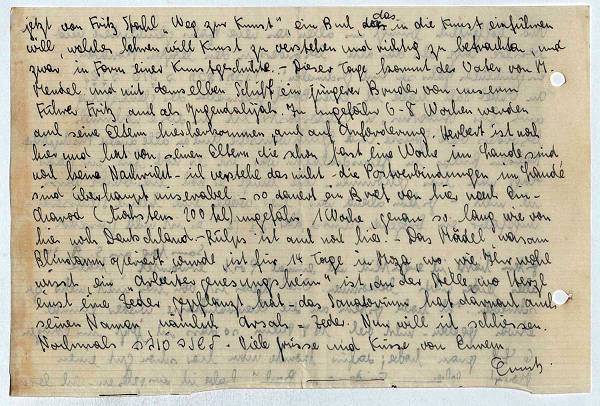 jetzt von Fritz Stahl „Weg zur Kunst", ein Buch, das in die Kunst einführen
will, welches lehren will Kunst zu verstehen und richtig zu betrachten, und
zwar in Form einer Kunstgeschichte. – Dieser Tage kommt der Vater von M.
Mendel und mit demselben Schiff ein jüngerer Bruder von unserm
Führer Fritz auch als Jugendalijah. In ungefähr 6-8 Wochen werden
auch seine Eltern hierherkommen, auch auf Anforderung. Herbert ist noch
hier und hat von seinen Eltern die schon fast eine Woche im Lande sind,
noch keine Nachricht – ich verstehe das nicht – die Postverbindungen im Lande
sind überhaupt miserabel – so dauert ein Brief von hier nach Ein-
Charod (höchstens 200 km) ungefähr 1 Woche, genau so lang wie von
hier nach Deutschland – ist auch noch hier. – Das Mädel, was am
Blinddarm operiert wurde ist für 14 Tage in Moza, wo wie Ihr wohl
wisst, ein „Arbeitergenesungsheim" ist, an der Stelle, wo Herzl
einst eine Zeder gepflanzt hat – das Sanatorium hat darnach auch
seinen Namen, nämlich Arsah – Zeder. Nun will ich schliessen.
Nochmals – Viele Grüsse und Küsse von Eurem
Ernst.